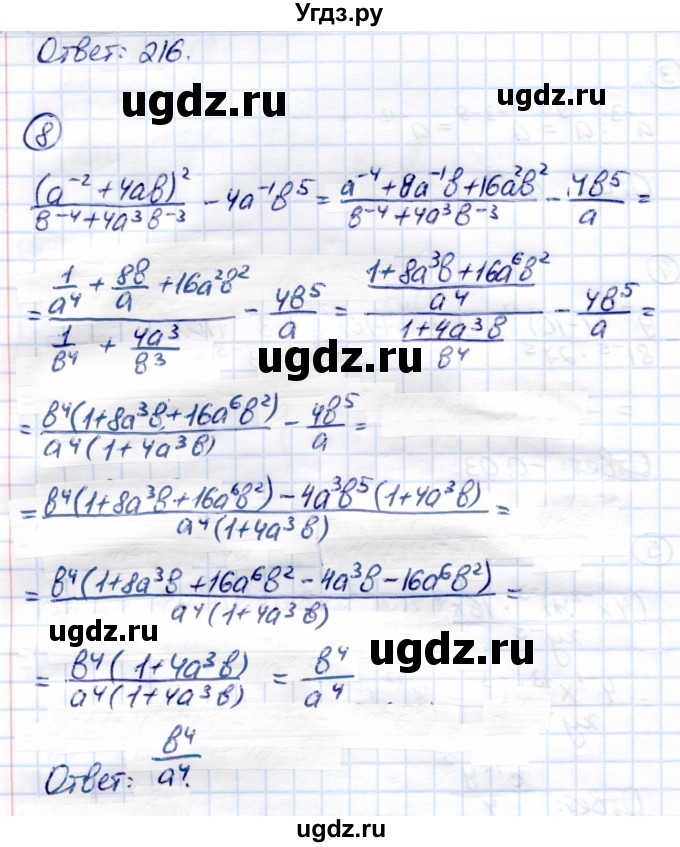 Угдз.ру
Ответ: 216.
ugdz.ru ugdz.ru
⑧
(a⁻² + 4ab)² / (b⁻⁴ + 4a³b⁻³) - 4a⁻¹b⁵ = (a⁻⁴ + 8a⁻¹b + 16a²b²) / (b⁻⁴ + 4a³b⁻³) - 4b⁵/a =
= (1/a⁴ + 8b/a + 16a²b²) / (1/b⁴ + 4a³/b³) - 4b⁵/a = ((1 + 8a³b + 16a⁶b²)/a⁴) / ((1 + 4a³b)/b⁴) - 4b⁵/a =
ugdz.ru
= b⁴(1 + 8a³b + 16a⁶b²) / a⁴(1 + 4a³b) - 4b⁵/a =
= (b⁴(1 + 8a³b + 16a⁶b²) - 4a³b⁵(1 + 4a³b)) / a⁴(1 + 4a³b) =
= b⁴(1 + 8a³b + 16a⁶b² - 4a³b - 16a⁶b²) / a⁴(1 + 4a³b) =
ugdz.ru ugdz.ru
= b⁴(1 + 4a³b) / a⁴(1 + 4a³b) = b⁴/a⁴
Ответ: b⁴/a⁴.
ugdz.ru
ugdz.ru